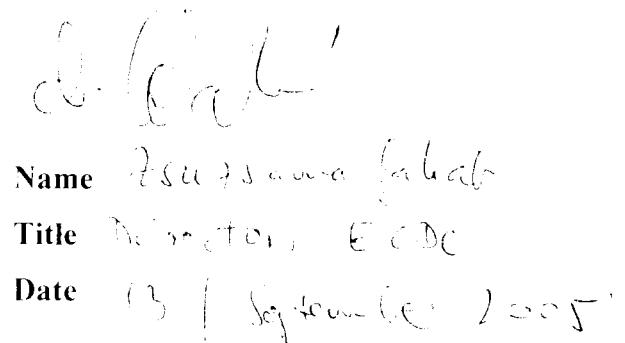 Name Zsuzsanna Jakab
Title Director, ECDC
Date 13 / September 2005